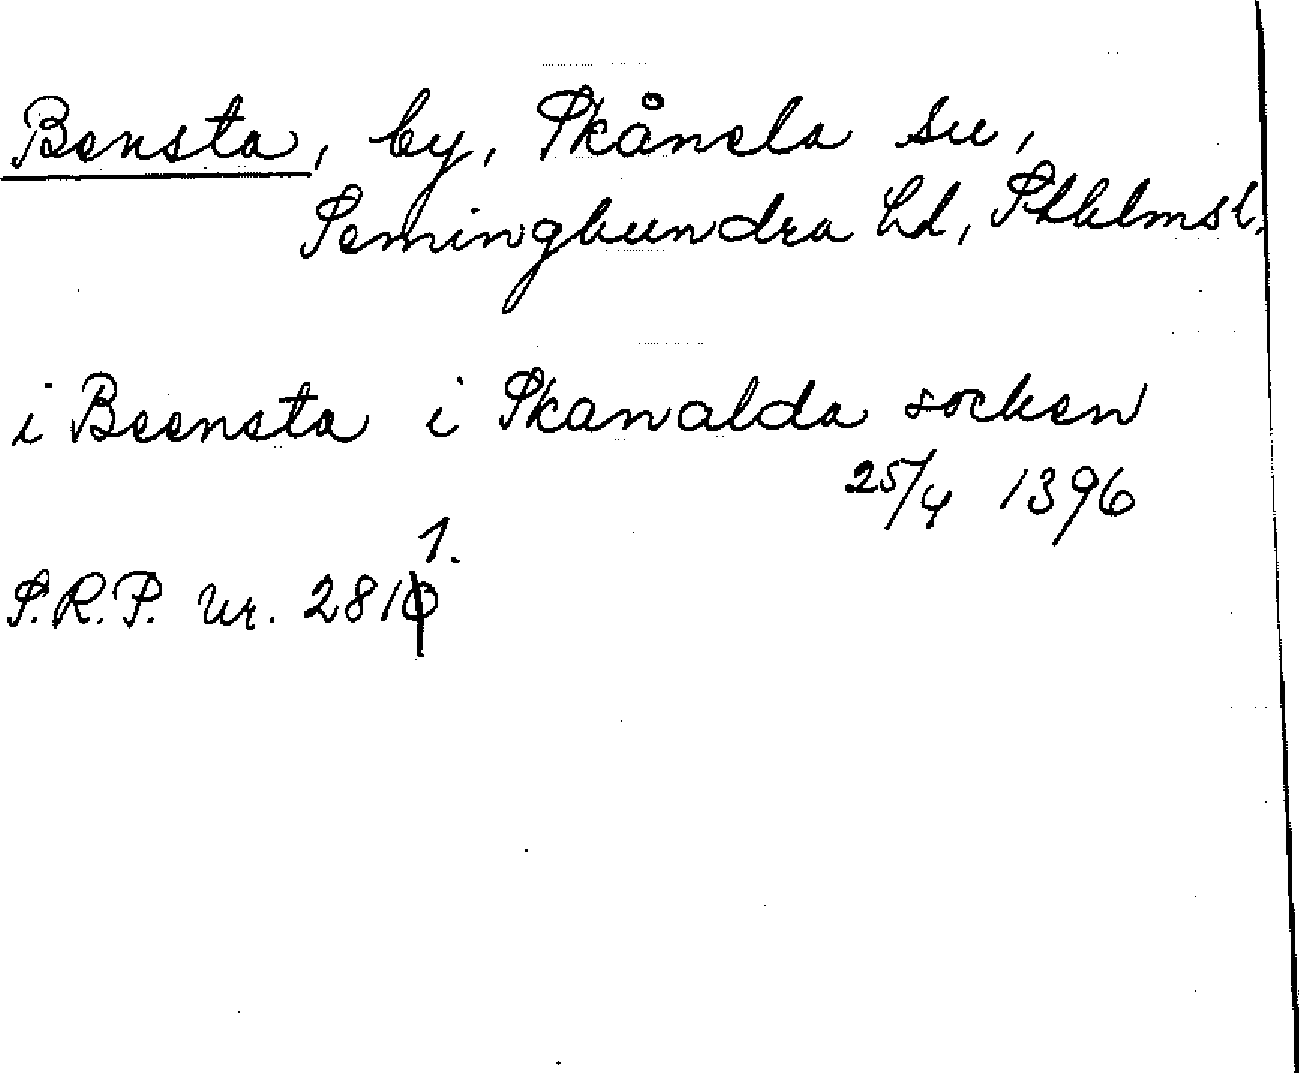 Bensta, by, Skånela sn,
Seminghundra hd, Sthlmsl.
i Beensta i Skanalda socken
25/4 1396
1.
S.R.P. nr. 2810